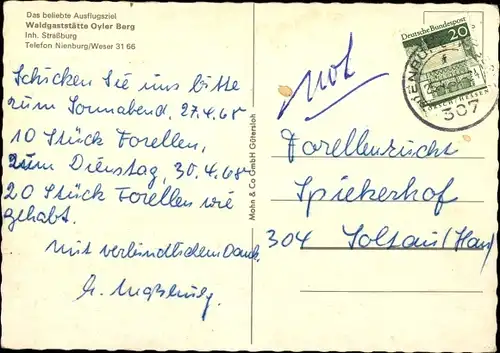 Das beliebte Ausflugsziel
Waldgaststätte Oyler Berg
Inh. Straßburg
Telefon Nienburg/Weser 31 66
Schicken Sie uns bitte
zum Sonnabend, 27.4.68
10 Stück Forellen,
zum Dienstag, 30.4.68
20 Stück Forellen wie
gehabt.
Mit verbindlichem Dank
Mohn & Co GmbH Gütersloh
Deutsche Bundespost
20
307
Forellenzucht
Spiekerhof
304 Soltau (Han)